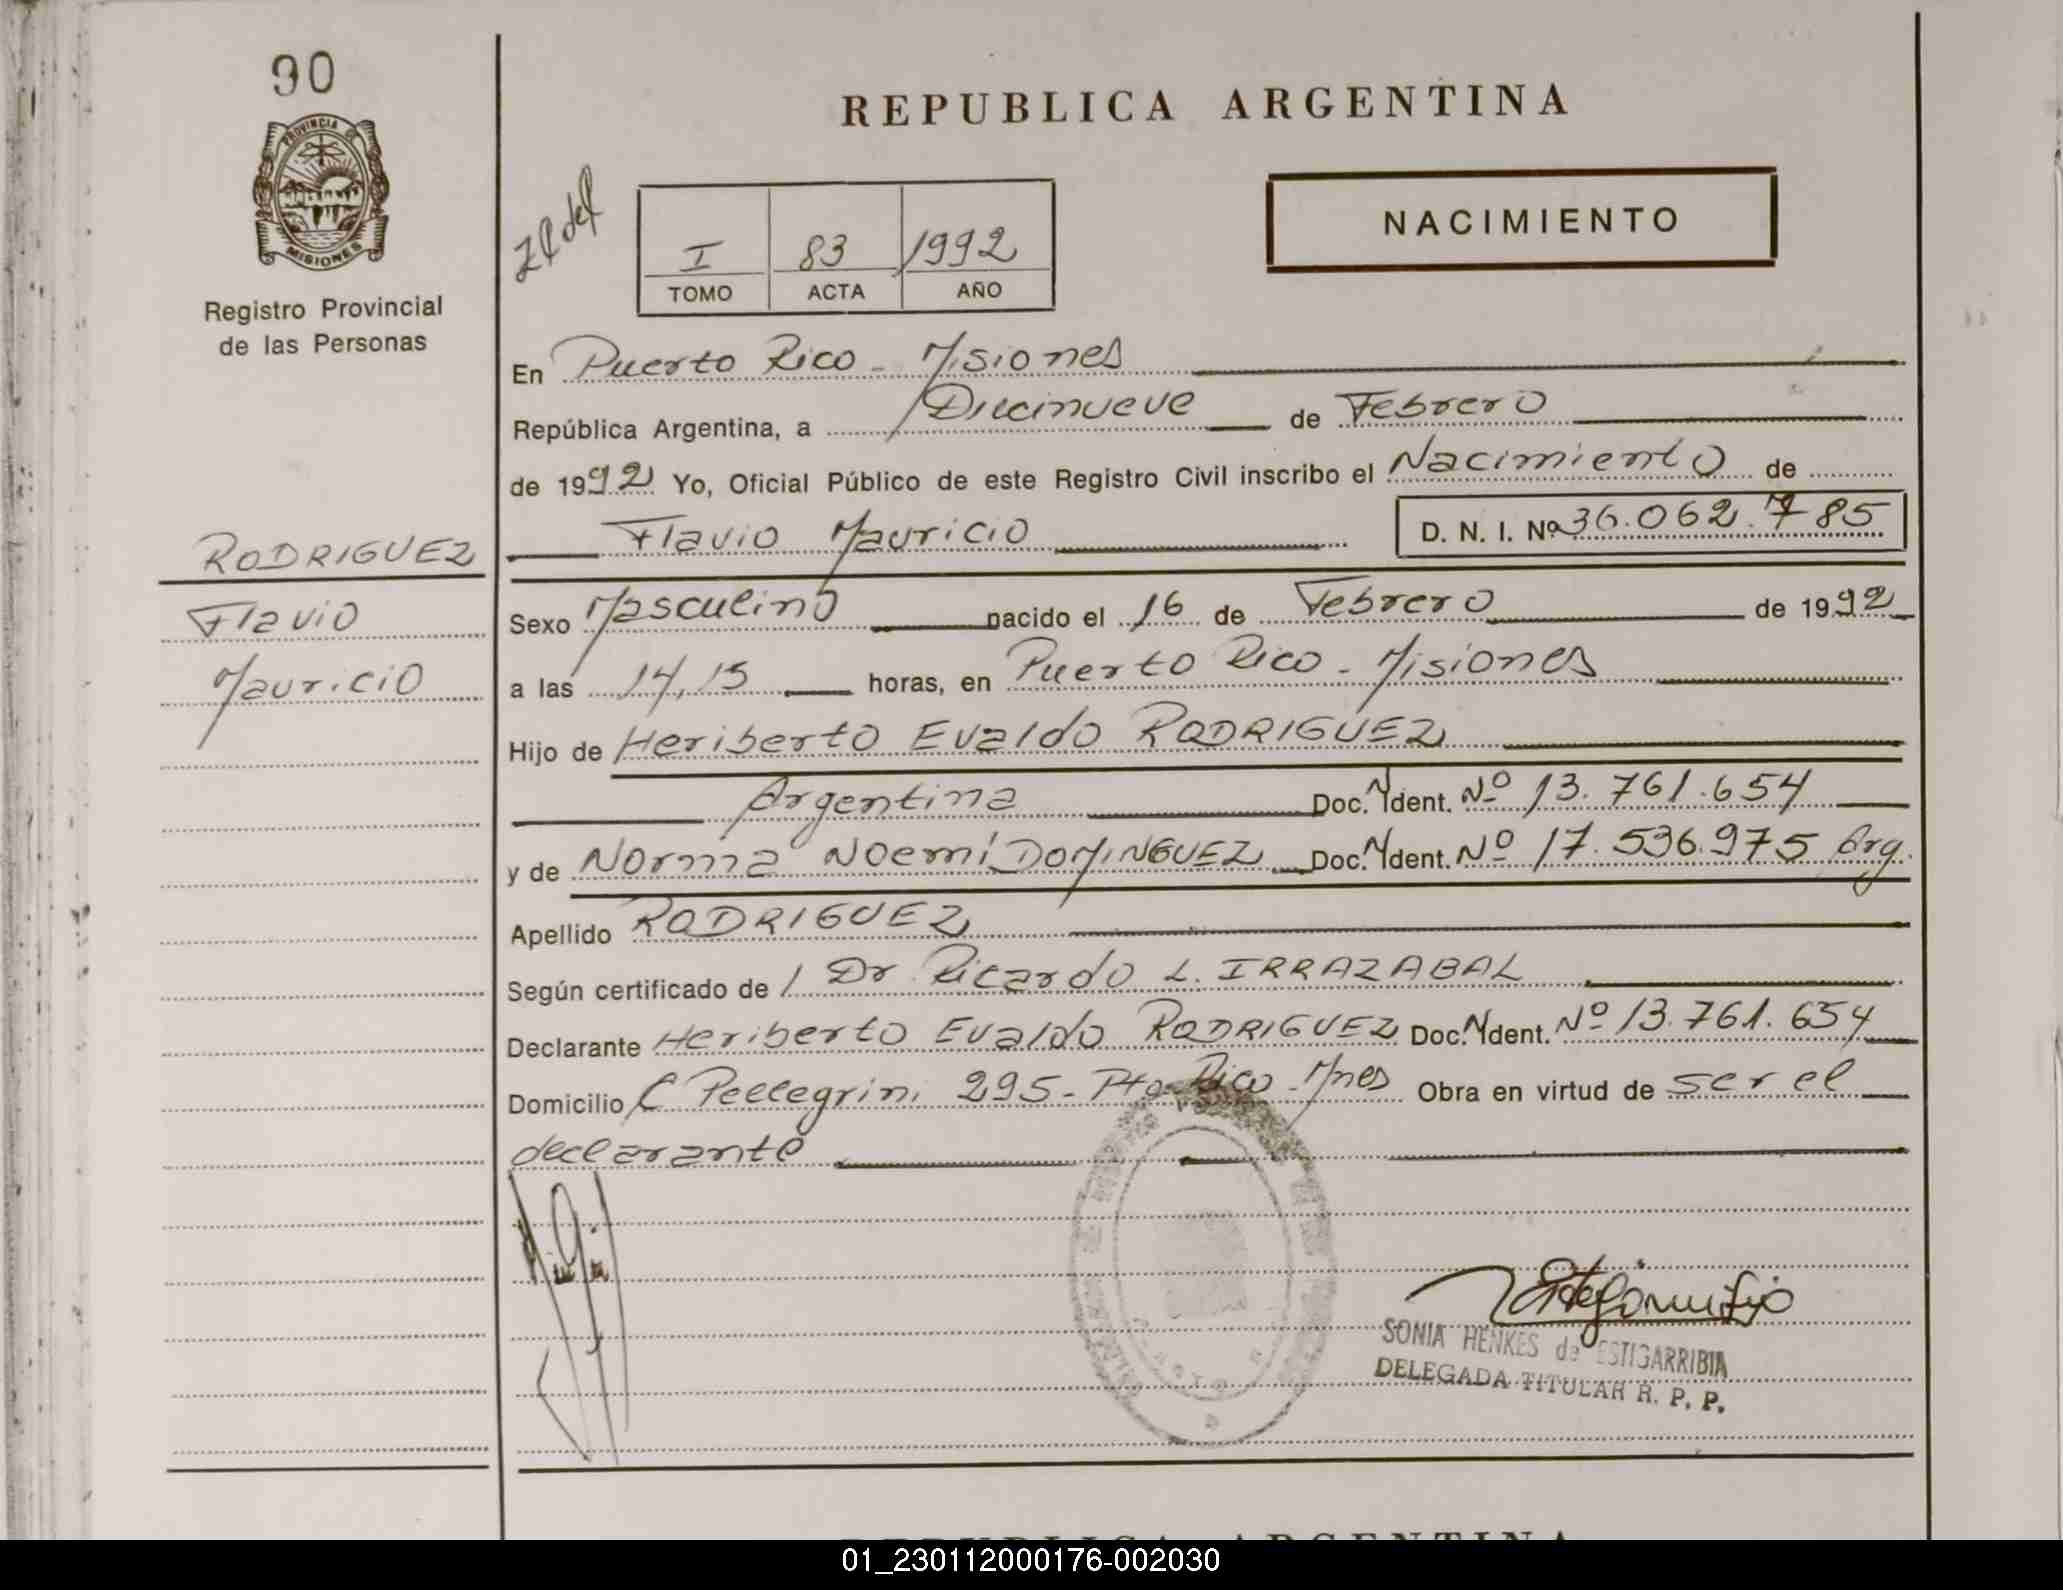 90
PROVINCIA DE
MISIONES
Registro Provincial
de las Personas
RODRIGUEZ
Flavio
Mauricio
REPUBLICA ARGENTINA
NACIMIENTO
I 83 1992
TOMO ACTA AÑO
En Puerto Rico - Misiones
República Argentina, a Diecinueve de Febrero
de 1992 Yo, Oficial Público de este Registro Civil inscribo el Nacimiento de
Flavio Mauricio D. N. I. Nº 36.062.785
Sexo Masculino nacido el 16 de Febrero de 1992
a las 14,15 horas, en Puerto Rico - Misiones
Hijo de Heriberto Evaldo RODRIGUEZ
Argentina Doc. N Ident. Nº 13.761.654
y de Norma Noemí DOMINGUEZ Doc. N Ident. Nº 17.536.975 Arg.
Apellido RODRIGUEZ
Según certificado de Dr Ricardo L. IRRAZABAL
Declarante Heriberto Evaldo RODRIGUEZ Doc. N Ident. Nº 13.761.654
Domicilio C Pellegrini 295 - Pto Rico - Mnes Obra en virtud de ser el
declarante
SONIA HENKES de ESTIGARRIBIA
DELEGADA TITULAR R. P. P.
REPUBLICA ARGENTINA
01_230112000176-002030